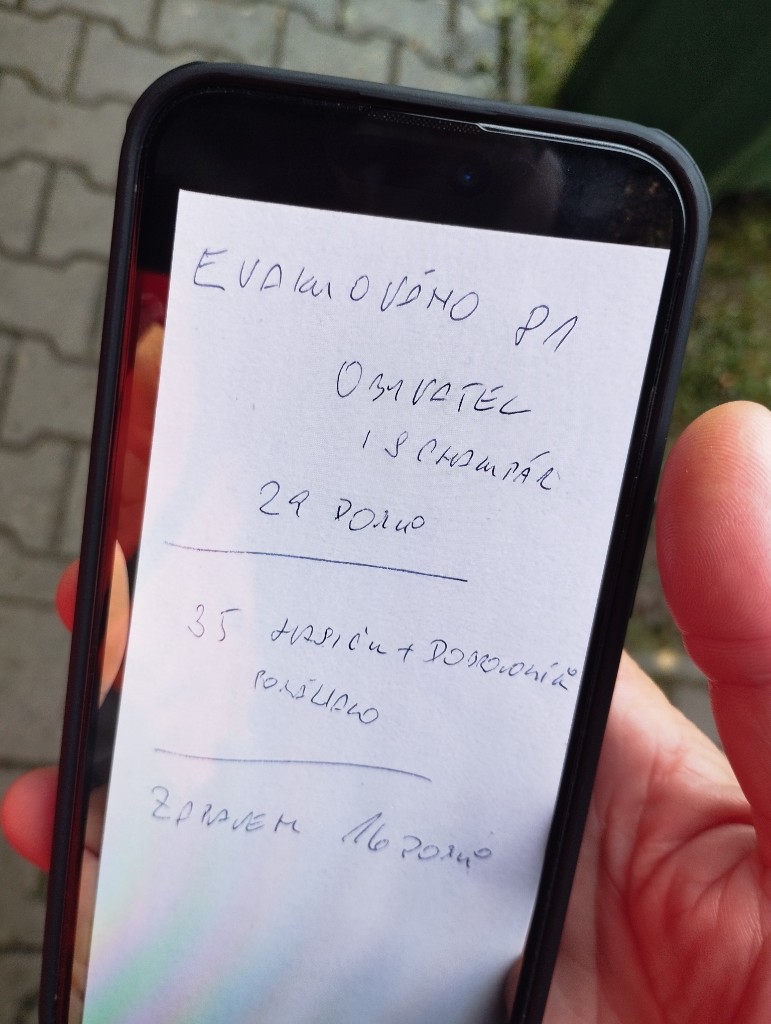 EVAKUOVÁNO 81
OBYVATEL
I S CHATAŘ
29 DOMŮ
35 HASIČŮ + DOBROVOLNÍKŮ
POMÁHALO
ZAPLAVEN 16 DOMŮ